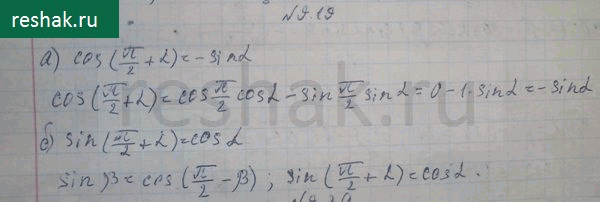 reshak.ru
№9.19
а) cos(π/2 + α) = -sinα
cos(π/2 + α) = cos π/2 cosα - sin π/2 sinα = 0 - 1·sinα = -sinα
б) sin(π/2 + α) = cosα
sinβ = cos(π/2 - β); sin(π/2 + α) = cosα.
reshak.ru